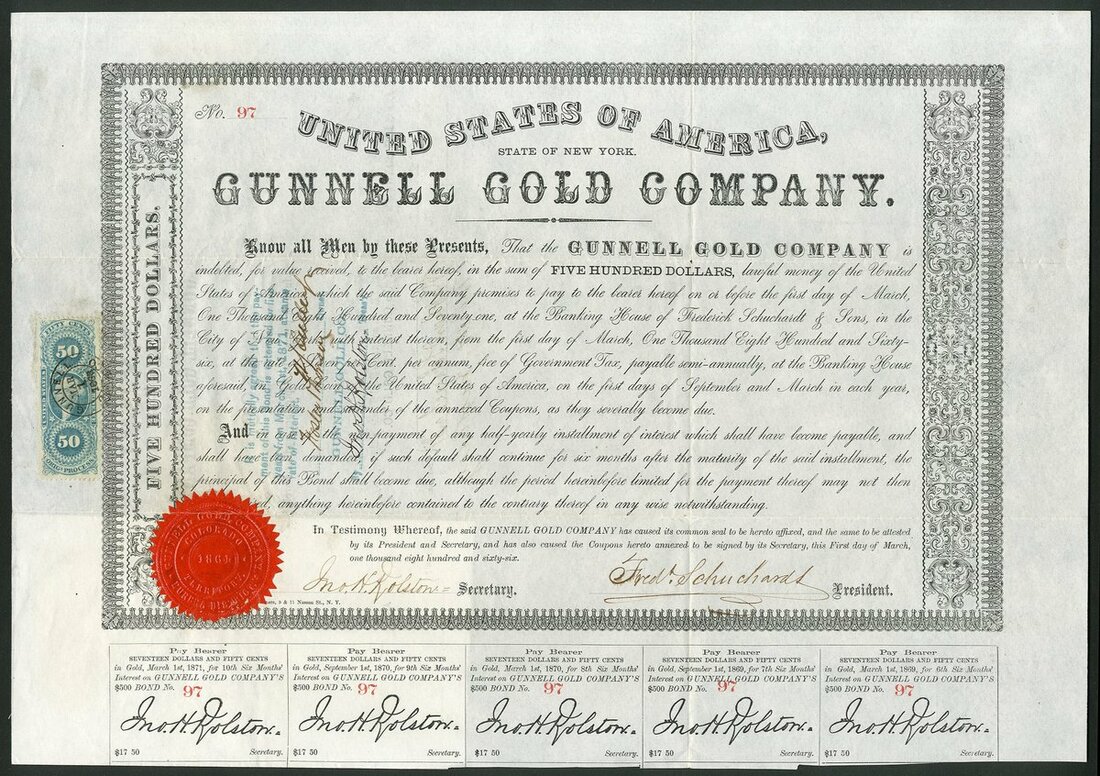 No. 97
UNITED STATES OF AMERICA,
STATE OF NEW YORK.
GUNNELL GOLD COMPANY.
Know all Men by these Presents, That the GUNNELL GOLD COMPANY is
indebted, for value received, to the bearer hereof, in the sum of FIVE HUNDRED DOLLARS, lawful money of the United
States of America, which the said Company promises to pay to the bearer hereof on or before the first day of March,
One Thousand Eight Hundred and Seventy-one, at the Banking House of Frederick Schuchardt & Sons, in the
City of New York, with interest thereon, from the first day of March, One Thousand Eight Hundred and Sixty-
six, at the rate of Seven per Cent. per annum, free of Government Tax, payable semi-annually, at the Banking House
aforesaid, in Gold Coin of the United States of America, on the first days of September and March in each year,
on the presentation and surrender of the annexed Coupons, as they severally become due.
And in case of the non-payment of any half-yearly installment of interest which shall have become payable, and
shall have been demanded, if such default shall continue for six months after the maturity of the said installment, the
principal of this Bond shall become due, although the period hereinbefore limited for the payment thereof may not then
anything hereinbefore contained to the contrary thereof in any wise notwithstanding.
In Testimony Whereof, the said GUNNELL GOLD COMPANY has caused its common seal to be hereto affixed, and the same to be attested
by its President and Secretary, and has also caused the Coupons hereto annexed to be signed by its Secretary, this First day of March,
one thousand eight hundred and sixty-six.
Jno. H. Rolston Secretary.
Fredk. Schuchardt President.
Nassau St., N. Y.
FIVE HUNDRED DOLLARS.
FIFTY CENTS
50
50
COLORADO
TERRITORY
Pay Bearer
SEVENTEEN DOLLARS AND FIFTY CENTS
in Gold, March 1st, 1871, for 10th Six Months'
Interest on GUNNELL GOLD COMPANY'S
$500 BOND No. 97
Jno. H. Rolston.
$17 50 Secretary.
Pay Bearer
SEVENTEEN DOLLARS AND FIFTY CENTS
in Gold, September 1st, 1870, for 9th Six Months'
Interest on GUNNELL GOLD COMPANY'S
$500 BOND No. 97
Jno. H. Rolston.
$17 50 Secretary.
Pay Bearer
SEVENTEEN DOLLARS AND FIFTY CENTS
in Gold, March 1st, 1870, for 8th Six Months'
Interest on GUNNELL GOLD COMPANY'S
$500 BOND No. 97
Jno. H. Rolston.
$17 50 Secretary.
Pay Bearer
SEVENTEEN DOLLARS AND FIFTY CENTS
in Gold, September 1st, 1869, for 7th Six Months'
Interest on GUNNELL GOLD COMPANY'S
$500 BOND No. 97
Jno. H. Rolston.
$17 50 Secretary.
Pay Bearer
SEVENTEEN DOLLARS AND FIFTY CENTS
in Gold, March 1st, 1869, for 6th Six Months'
Interest on GUNNELL GOLD COMPANY'S
$500 BOND No. 97
Jno. H. Rolston.
$17 50 Secretary.